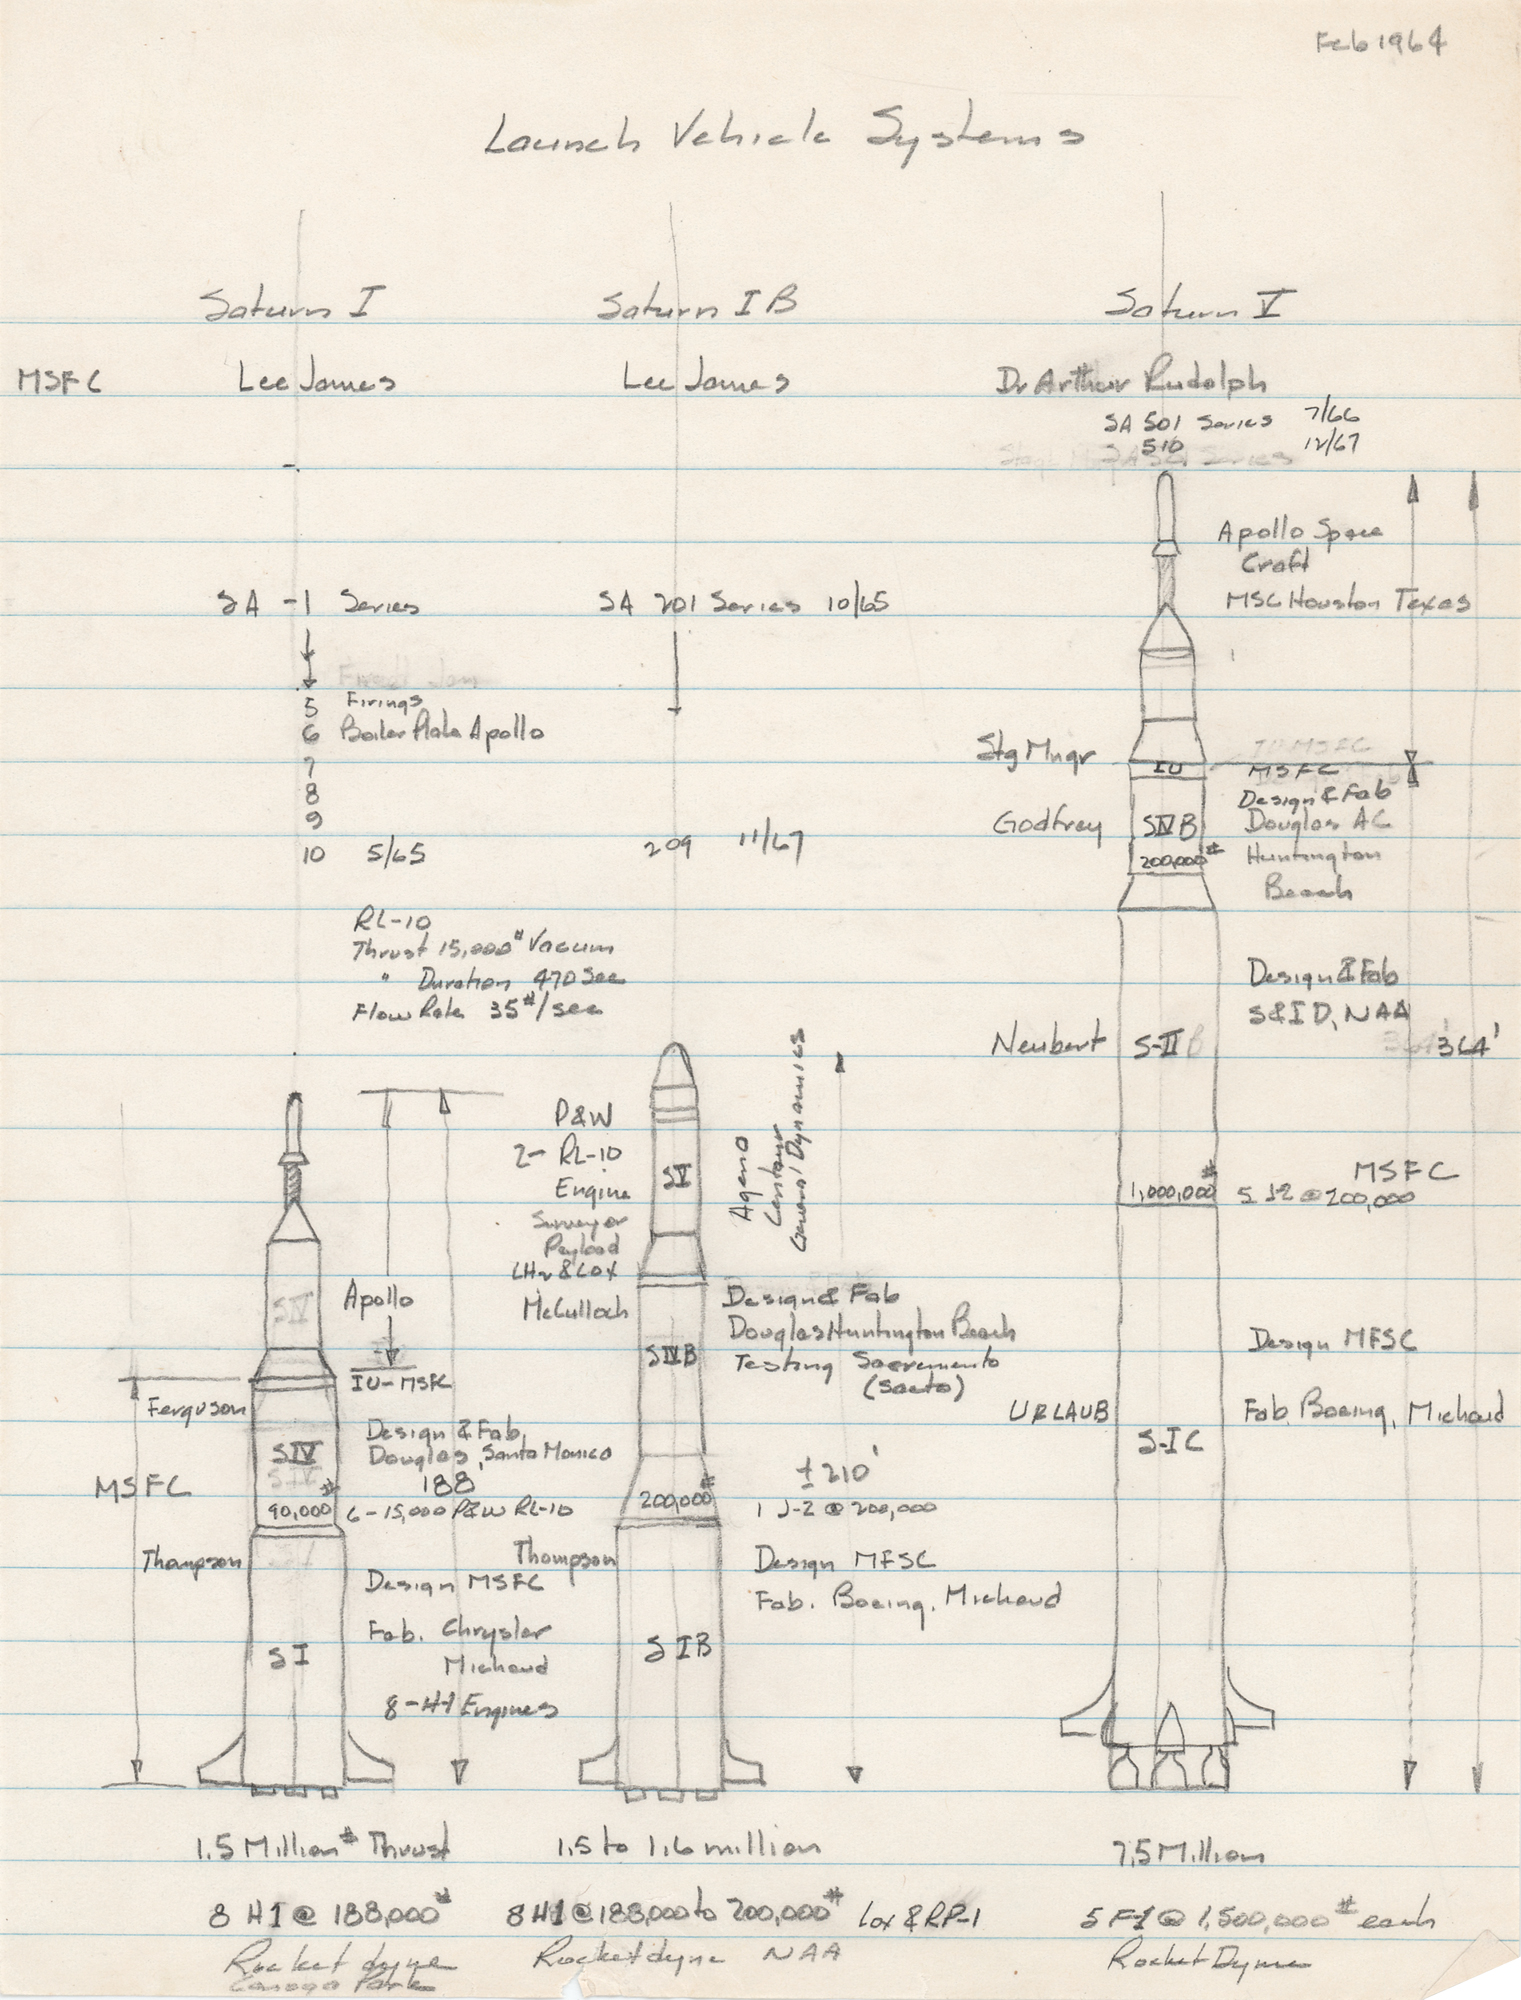 Feb 1964
Launch Vehicle Systems
Saturn I
Saturn IB
Saturn V
MSFC
Lee James
Lee James
Dr Arthur Rudolph
SA 501 Series 7/66
510 12/67
SA -1 Series
5 Firings
6 Boiler Plate Apollo
7
8
9
10 5/65
RL-10
Thrust 15,000# Vacum
" Duration 470 Sec
Flow Rate 35#/sec
SA 201 Series 10/65
209 11/67
Apollo Space
Craft
MSC Houston Texas
Stg Mngr
IU
MSFC
Design & Fab
Godfrey
SIVB
Douglas AC
200,000#
Huntington
Beach
Design & Fab
S&ID, NAA
Neubert
S-II
364'
1,000,000#
MSFC
5 J-2 @ 200,000
Design MFSC
URLAUB
Fab. Boeing, Michoud
S-IC
Apollo
IU-MSFC
Ferguson
SIV
Design & Fab,
Douglas, Santa Monica
188
MSFC
90,000#
6-15,000 P&W RL-10
Thompson
Design MSFC
SI
Fab. Chrysler
Michoud
8-H-1 Engines
P&W
2- RL-10
Engine
Surveyor
Payload
LH2 & LOX
McCulloch
SV
Agena
Centaur
General Dynamics
SIVB
Design & Fab
Douglas Huntington Beach
Testing Sacremento
(Sacto)
±210'
200,000#
1 J-2 @ 200,000
Thompson
Design MFSC
Fab. Boeing, Michoud
SIB
1.5 Million# Thrust
1.5 to 1.6 million
7.5 Million
8 H1 @ 188,000#
8 H1 @ 188,000 to 200,000# Lox & RP-1
5 F-1 @ 1,500,000# each
Rocket dyne
Canoga Park
Rocketdyne NAA
RocketDyne